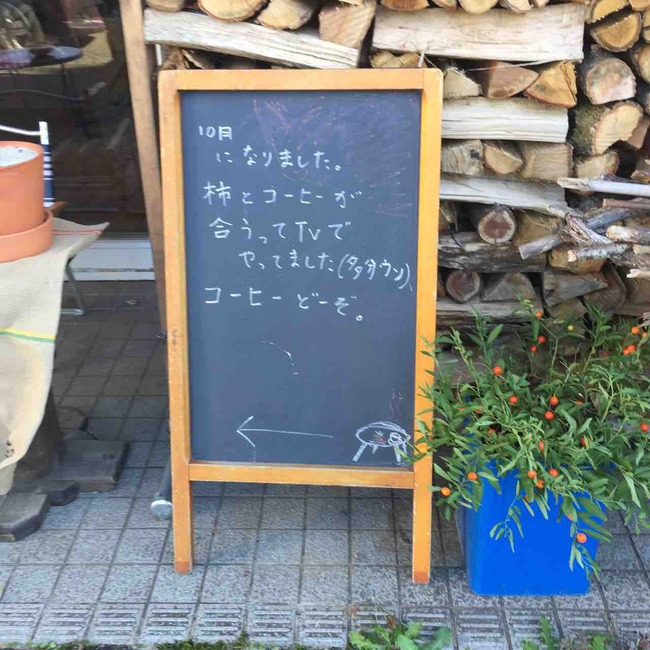 10月
になりました。
柿とコーヒーが
合うってTVで
やってました(多分ウソ)、
コーヒーどーぞ。